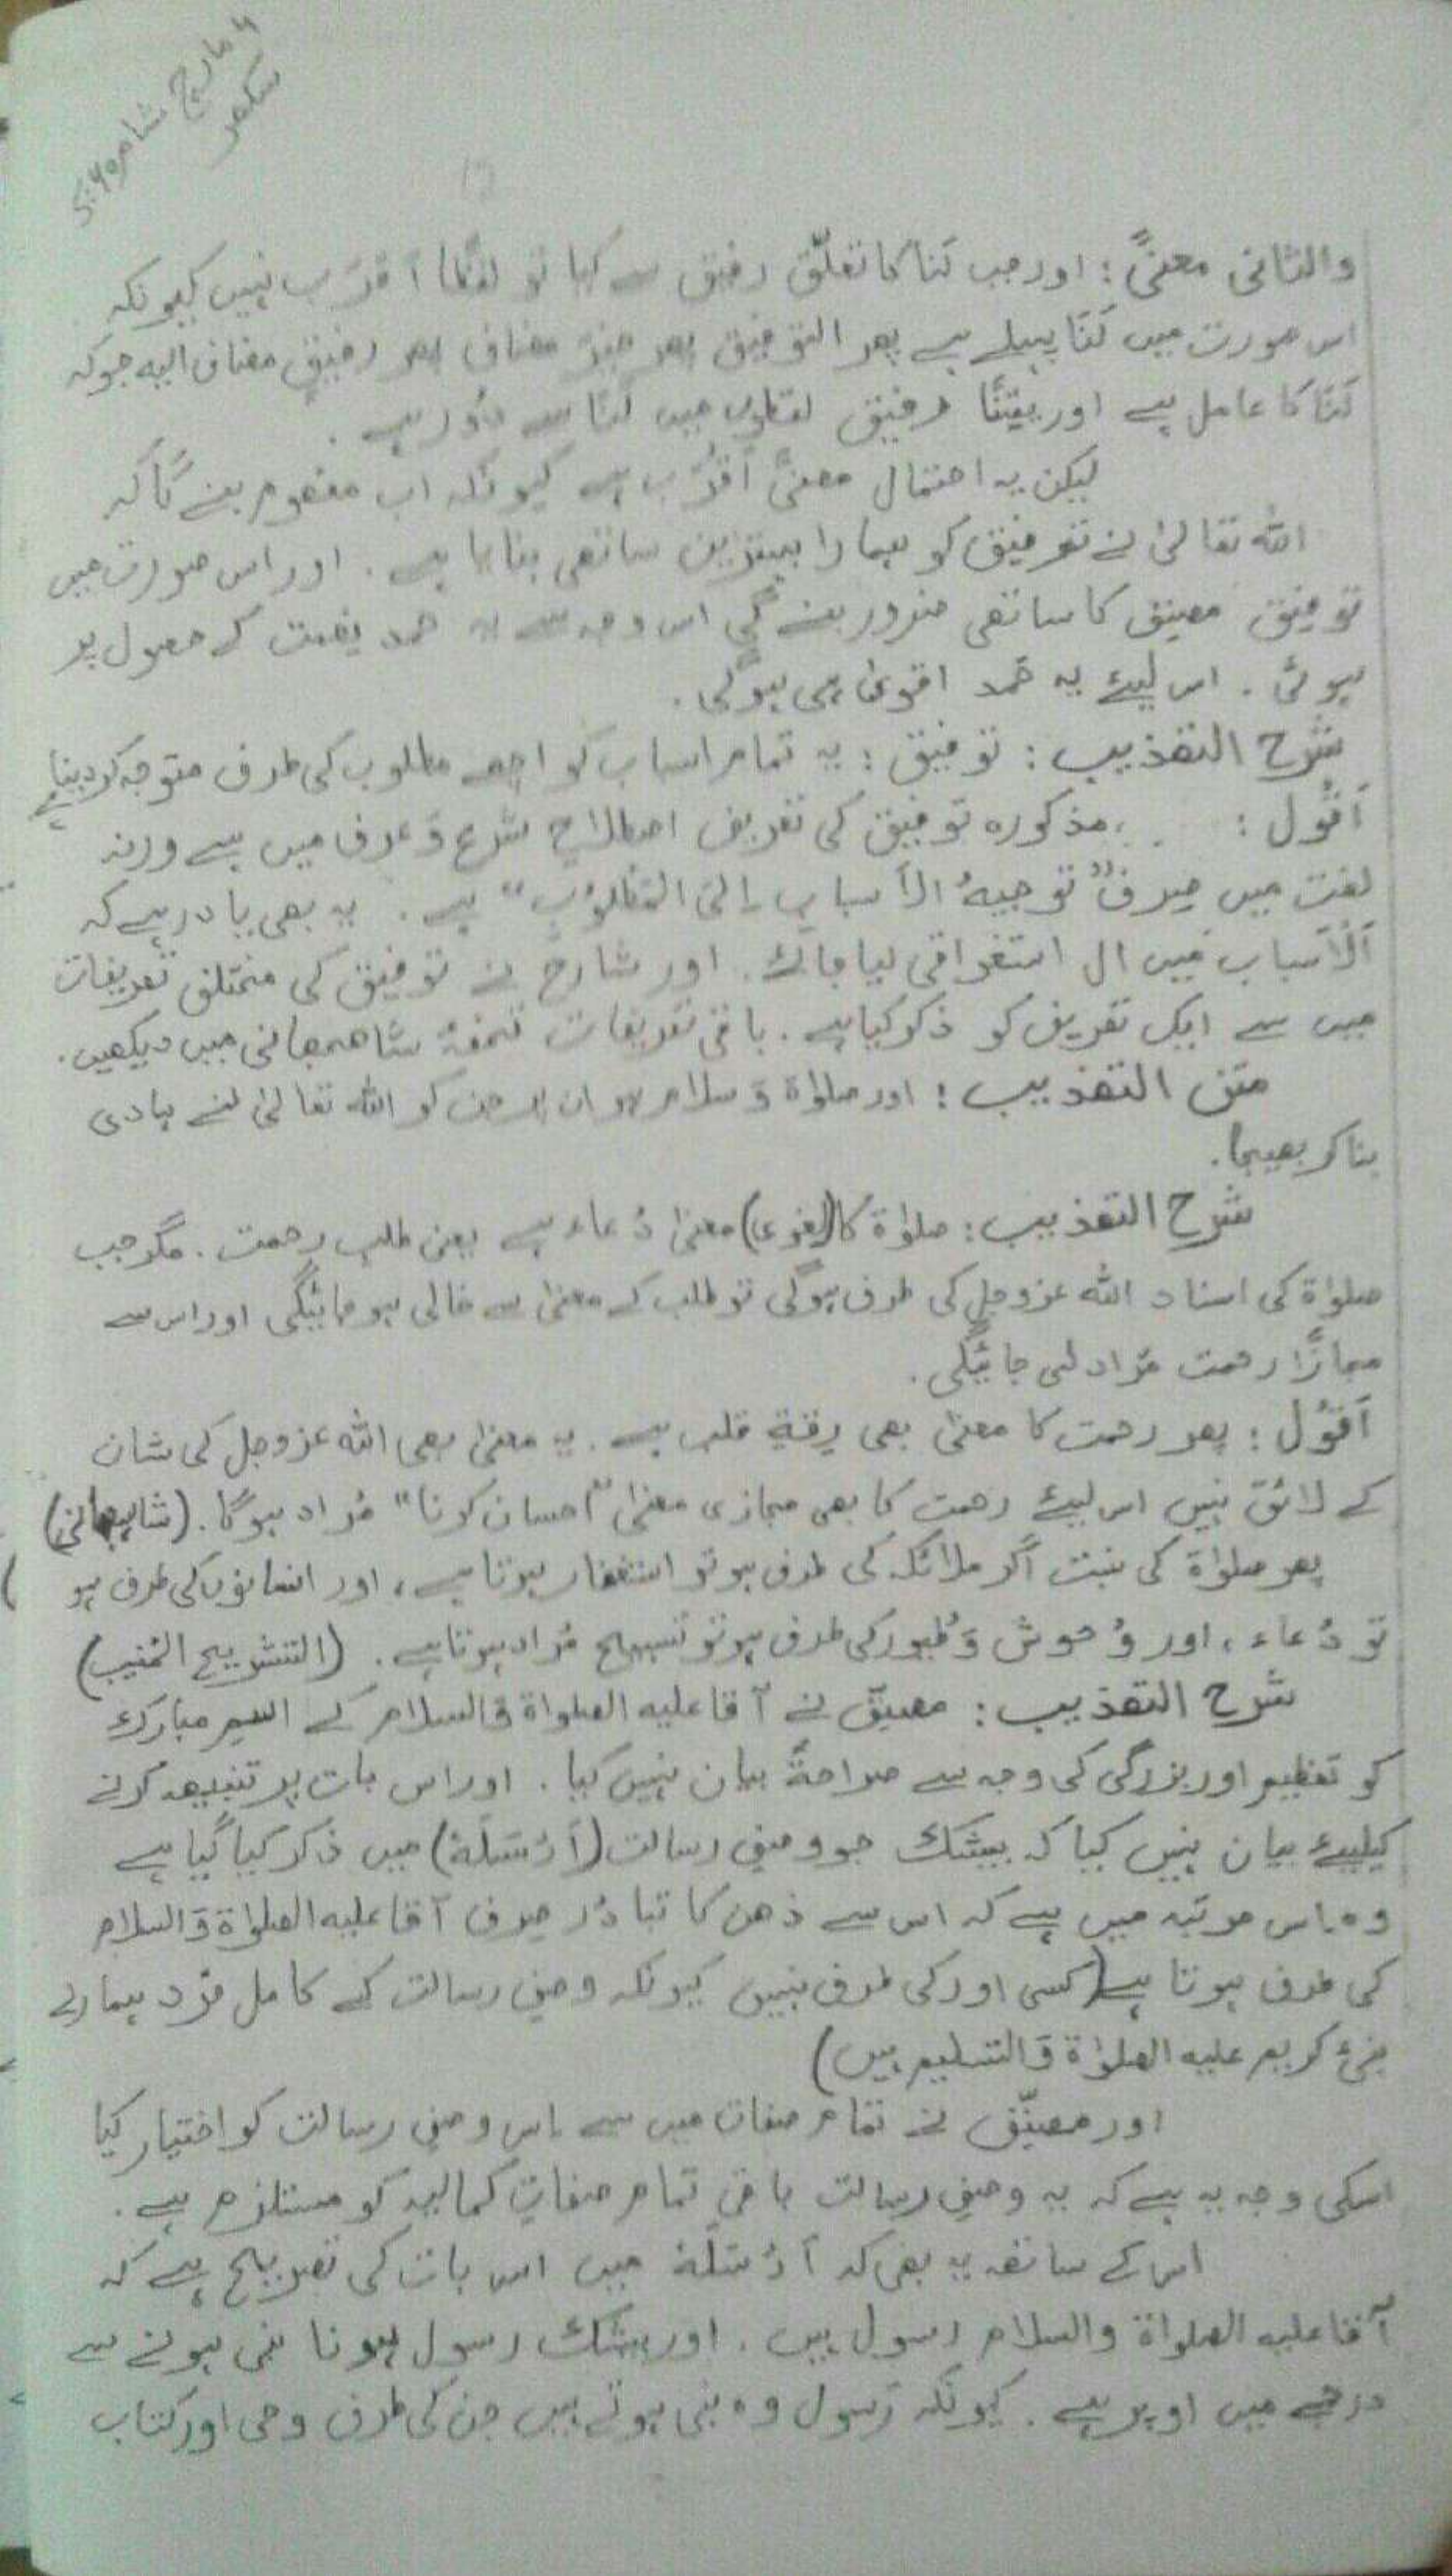 ۹ مارچ شام 5:40
سکھر
والثانی معنًی : اور جب لَنَا کا تعلّق رفیق سے کیا تو لفظًا اَقْرَب نہیں کیونکہ
اس صورت میں لَنَا پہلے ہے پھر التوفیق پھر خیرَ مضاف پھر رفیقٍ مضاف الیہ جو کہ
لَنَا کا عامل ہے اور یقینًا رفیق لفظوں میں لَنَا سے دُور ہے .
لیکن یہ احتمال معنًی اَقْرَب ہے کیونکہ اب مفہوم بنے گا کہ
اللہ تعالیٰ نے توفیق کو ہمارا بہترین ساتھی بنایا ہے . اور اس صورت میں
توفیق مصنف کا ساتھی ضرور بنے گی اس وجہ سے یہ حمد نعمت کے حصول پر
ہوئی . اس لیئے یہ حَمد اقویٰ ہی ہوگی .
شرح التھذیب : توفیق : یہ تمام اسباب کو اچھے مطلوب کی طرف متوجہ کر دینا ہے
اَقُول : مذکورہ توفیق کی تعریف اصطلاحِ شرع وَ عرف میں ہے ورنہ
لغت میں صِرف "توجیہُ الاَسبابِ اِلیَ المَطلُوْبِ" ہے . یہ بھی یاد رہے کہ
اَلْاَسباب میں ال استغراقی لیا جائے . اور شارح نے توفیق کی مختلف تعریفات
میں سے ایک تعریف کو ذکر کیا ہے . باقی تعریفات تحفۂ شاھجھانی میں دیکھیں .
متن التھذیب : اور صلوٰۃ وَ سلام ہو ان پر جن کو اللہ تعالیٰ نے ہادی
بنا کر بھیجا .
شرح التھذیب : صلوٰۃ کا (لغوی) معنیٰ دُعاء ہے یعنی طلبِ رحمت . مگر جب
صلوٰۃ کی اسناد اللہ عزوجل کی طرف ہوگی تو طلب کے معنیٰ سے خالی ہو جائیگی اور اس سے
مجازًا رحمت مُراد لی جائیگی .
اَقُول : پھر رحمت کا معنیٰ بھی رِقتِ قلب ہے . یہ معنیٰ بھی اللہ عزوجل کی شان
کے لائق نہیں اس لیئے رحمت کا بھی مجازی معنیٰ "احسان کرنا" مُراد ہوگا . (شاہجہانی)
پھر صلوٰۃ کی نسبت اگر ملائکہ کی طرف ہو تو استغفار ہوتا ہے ، اور انسانوں کی طرف ہو
تو دُعاء ، اور وُحوش وَ طُیور کی طرف ہو تو تسبیح مُراد ہوتا ہے . (التشریح المنیب)
شرح التھذیب : مصنِّف نے آقا علیہ الصلواۃ والسلام کے اسم مبارک
کو تعظیم اور بزرگی کی وجہ سے صراحۃً بیان نہیں کیا . اور اس بات پر تنبیھ کرنے
کیلیئے بیان نہیں کیا کہ بیشک جو وصفِ رسالت (اَرْسَلَہٗ) میں ذکر کیا گیا ہے
وہ اس مرتبہ میں ہے کہ اس سے ذھن کا تبادُر صِرف آقا علیہ الصلوٰۃ وَالسلام
کی طرف ہوتا ہے (کسی اور کی طرف نہیں کیونکہ وصفِ رسالت کے کامل فرد ہمارے
نبیٔ کریم علیہ الصلوٰۃ وَالتسلیم ہیں)
اور مصنِّف نے تمام صفات میں سے اس وصفِ رسالت کو اختیار کیا
اسکی وجہ یہ ہے کہ یہ وصفِ رسالت باقی تمام صفاتِ کمالیہ کو مستلزم ہے .
اس کے ساتھ یہ بھی کہ اَرْسَلَہٗ میں اس بات کی تصریح ہے کہ
آقا علیہ الصلواۃ والسلام رسول ہیں . اور بیشک رسول ہونا نبی ہونے سے
درجے میں اوپر ہے . کیونکہ رَسول وہ نبی ہوتے ہیں جن کی طرف وحی اور کتاب